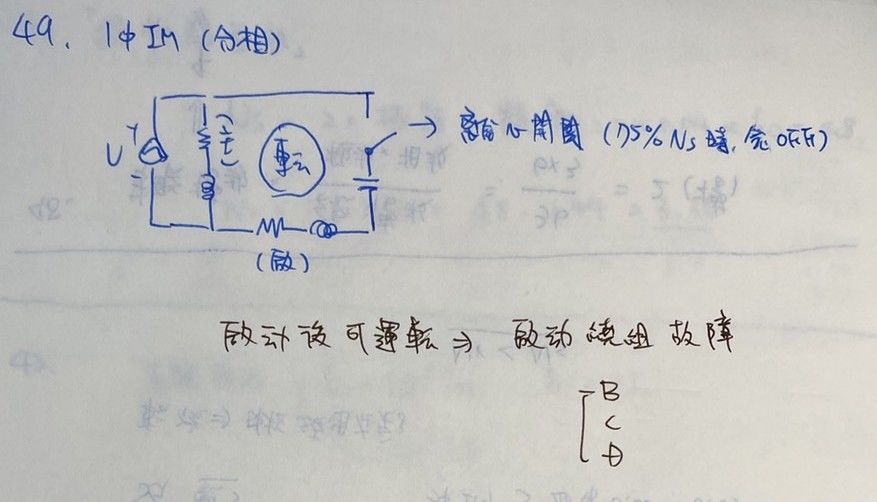 49. 1φ IM (分相)
V
+
-
(主)
転
→ 離心開關 (75% Ns 時, 会 OFF)
(啟)
啟动後可運転 ⇒ 啟动繞組故障
B
C
D